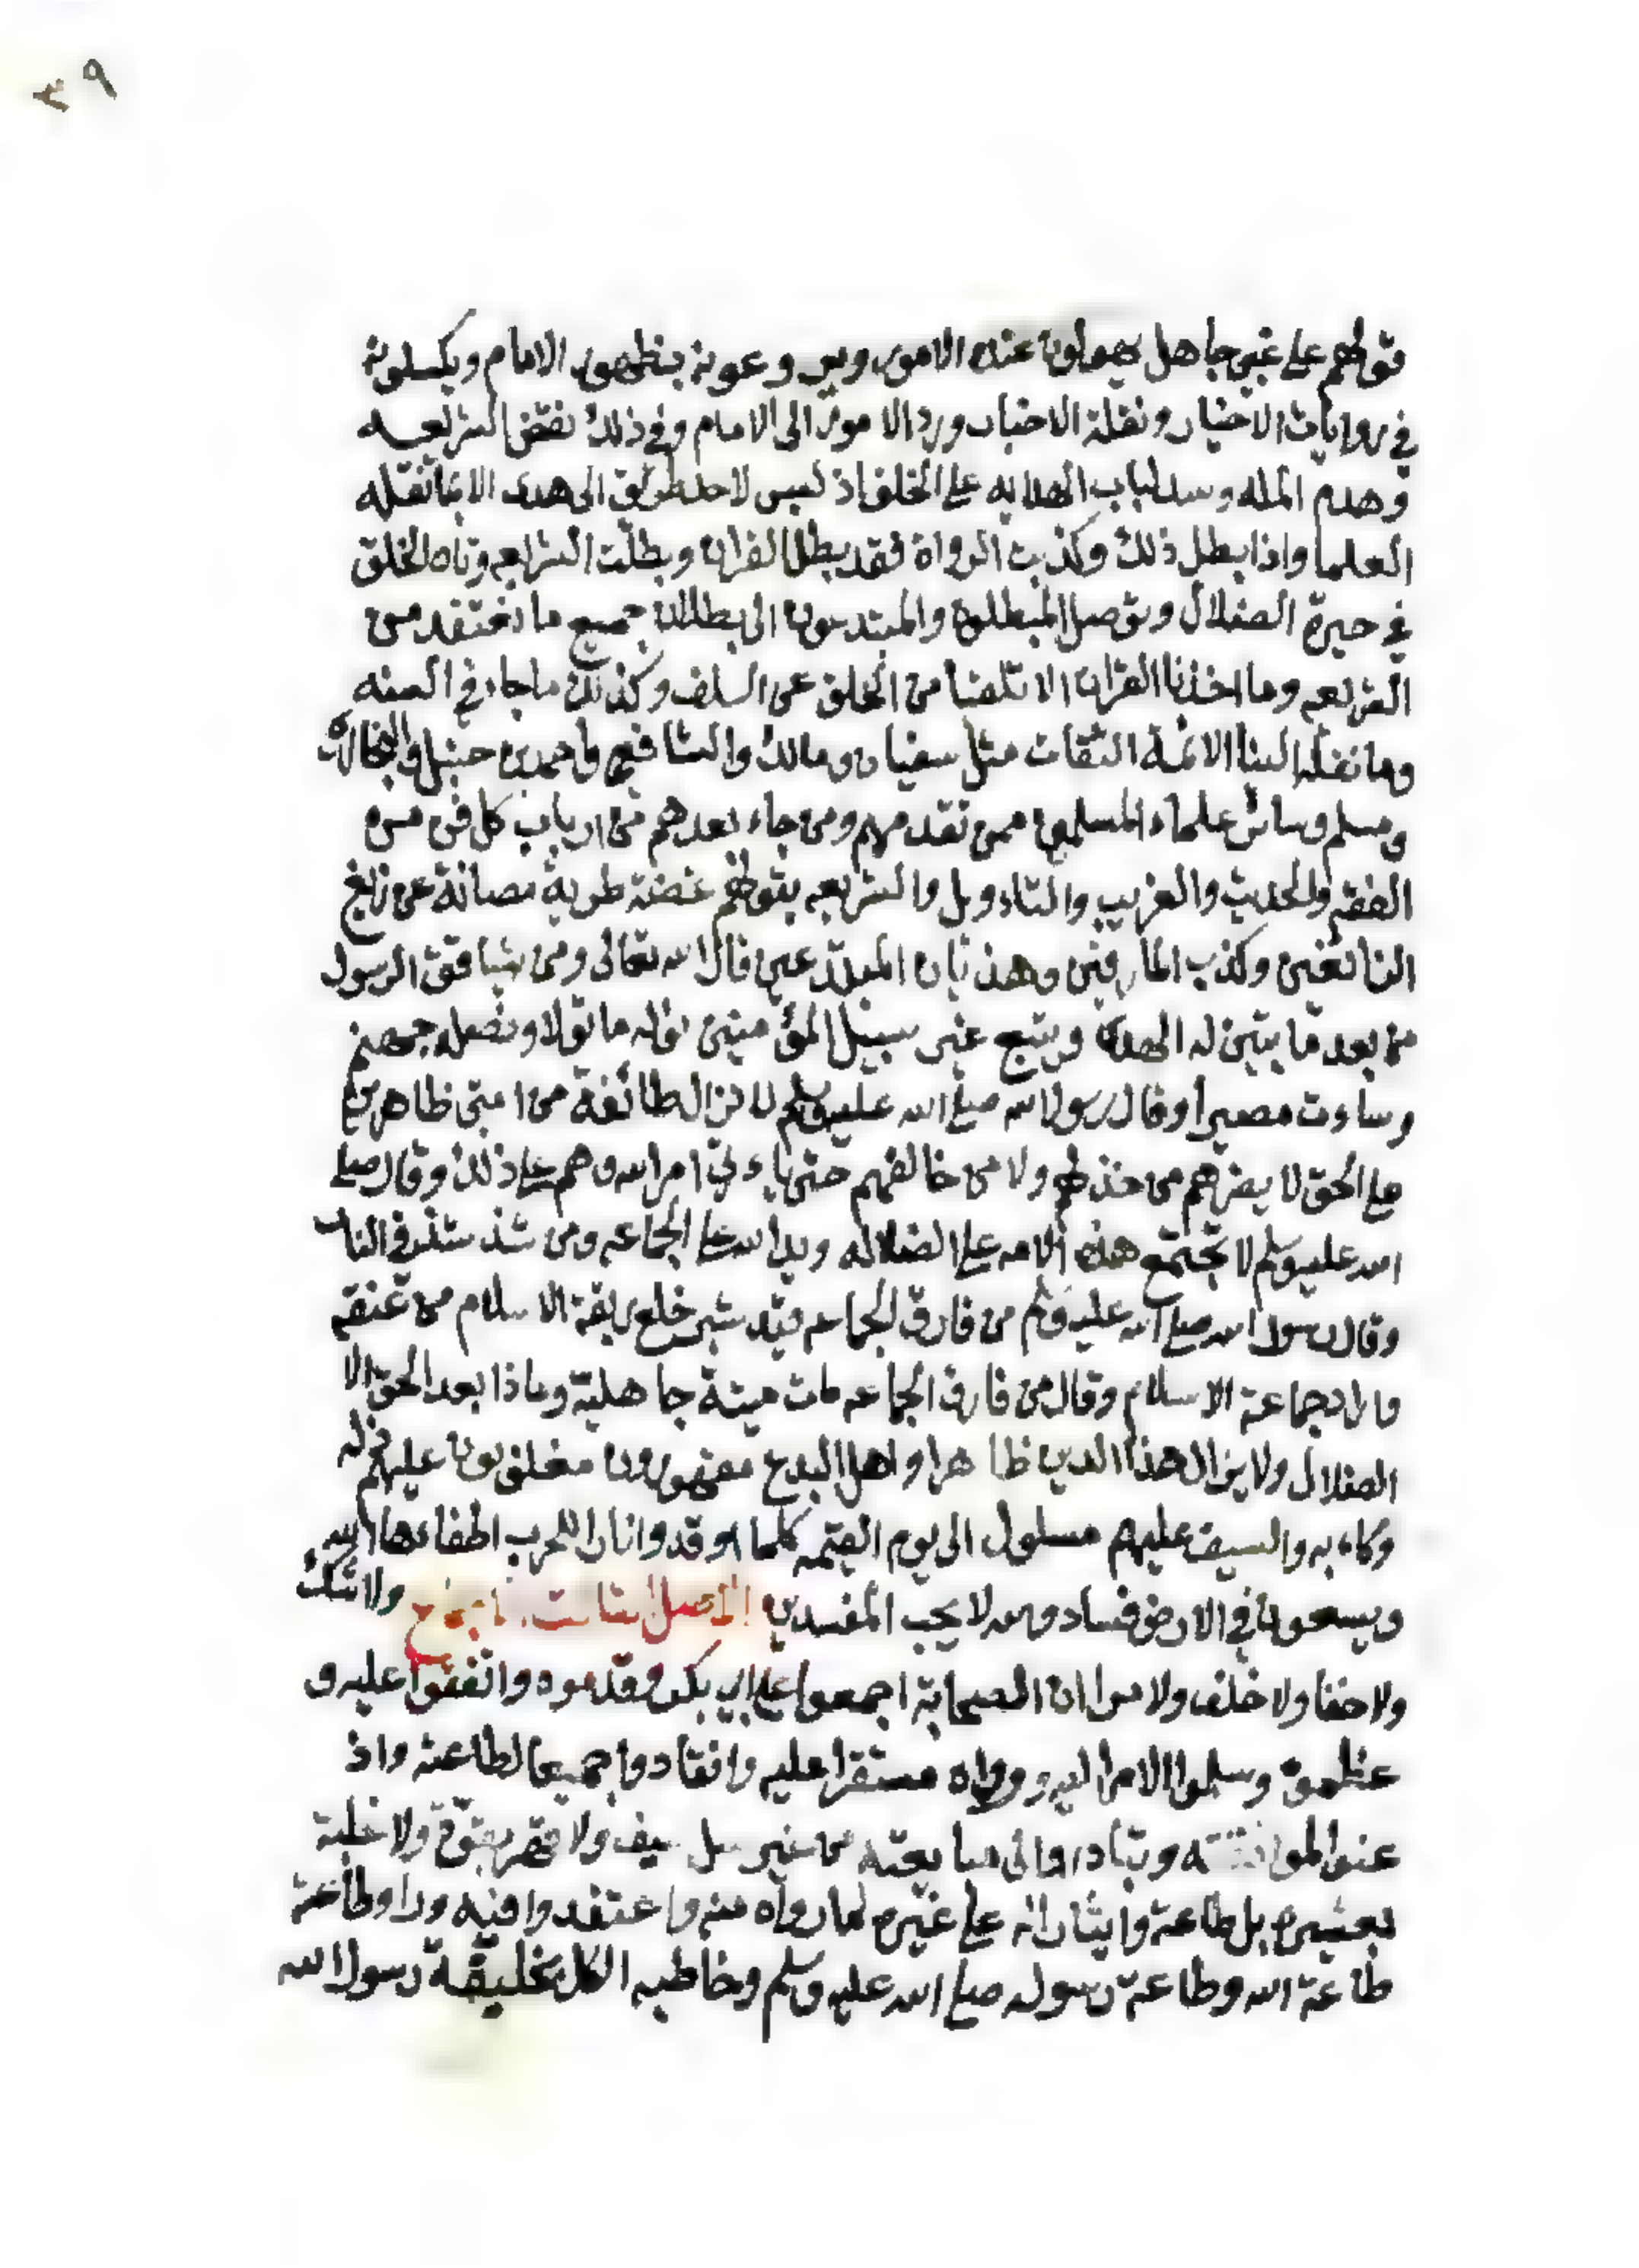 ٣٩
قولهم على غبي جاهل يهولون عنده الامور ويوعدونه بظهور الامام ويكسلونه
في روايات الاخبار ونقلة الاخبار ورد الامور الى الامام وفي ذلك نقض الشريعه
وهدم المله وسد لباب الهدايه على الخلق اذ ليس لاحد طريق الى هدى الا بما نقله
العلما واذا بطل ذلك وكذبت الرواة فقد بطل القران وبطلت الشرايع وتاه الخلق
في حيرة الضلال وتوصل المبطلون والمبتدعون الى بطلان جميع ما نعتقد من
الشريعه وما اخذنا القران الا تلقنا من الخلق عن السلف وكذلك ما جاء في السنه
وما نقله الينا الائمة الثقات مثل سفيان ومالك والشافعي واحمد بن حنبل والبخاري
ومسلم وسائر علماء المسلمين ممن تقدمهم ومن جاء بعدهم من ارباب كل فن من
الفقه والحديث والغريب والتاويل والشريعه بقولهم غضة طرية مصانة عن زيغ
الزائغين وكذب المارقين وهذيان المبتدعين قال الله تعالى ومن يشاقق الرسول
من بعد ما يتبين له الهدى ويتبع غير سبيل المؤمنين نوله ما تولا ونصله جهنم
وساءت مصيرا وقال رسول الله صلى الله عليه وسلم لا تزال طائفة من امتي ظاهرين
على الحق لا يضرهم من خذلهم ولا من خالفهم حتى ياءتي امر الله وهم على ذلك وقال صلى
الله عليه وسلم لا تجتمع هذه الامه على الضلاله ويد الله على الجماعه ومن شذ شذ في النار
وقال رسول الله صلى الله عليه وسلم من فارق الجماعه قيد شبر خلع ربقة الاسلام من عنقه
وقال من فارق الجماعه مات ميتة جاهلية وماذا بعد الحق الا
الضلال ولا يزال هذا الدين ظاهرا واهل البدع مقهورون مغلوبون عليهم ذله
وكاءبه والسيف عليهم مسلول الى يوم القيمه كلما اوقدوا نارا للحرب اطفاءها الله
ويسعون في الارض فساد والله لا يحب المفسدين ولا شك
ولا خفا ولا خلف ولا مرا ان الصحابة اجمعوا على ابي بكر وقدموه واتفقوا عليه و
عظموه وسلموا الامر اليه وراوه مستقرا عليه وانقادوا جميعا لطاعته واذ
عنوا لموافقته وتبادروا الى مبايعته من غير سل سيف ولا قهر بقوة ولا غلبة
بعشيرة بل طاعة وايثارا له على غيره لما رواه منه واعتقدوا فيه وراوا طاعته
طاعة الله وطاعة رسوله صلى الله عليه وسلم وخاطبه الكل بخليفة رسول الله